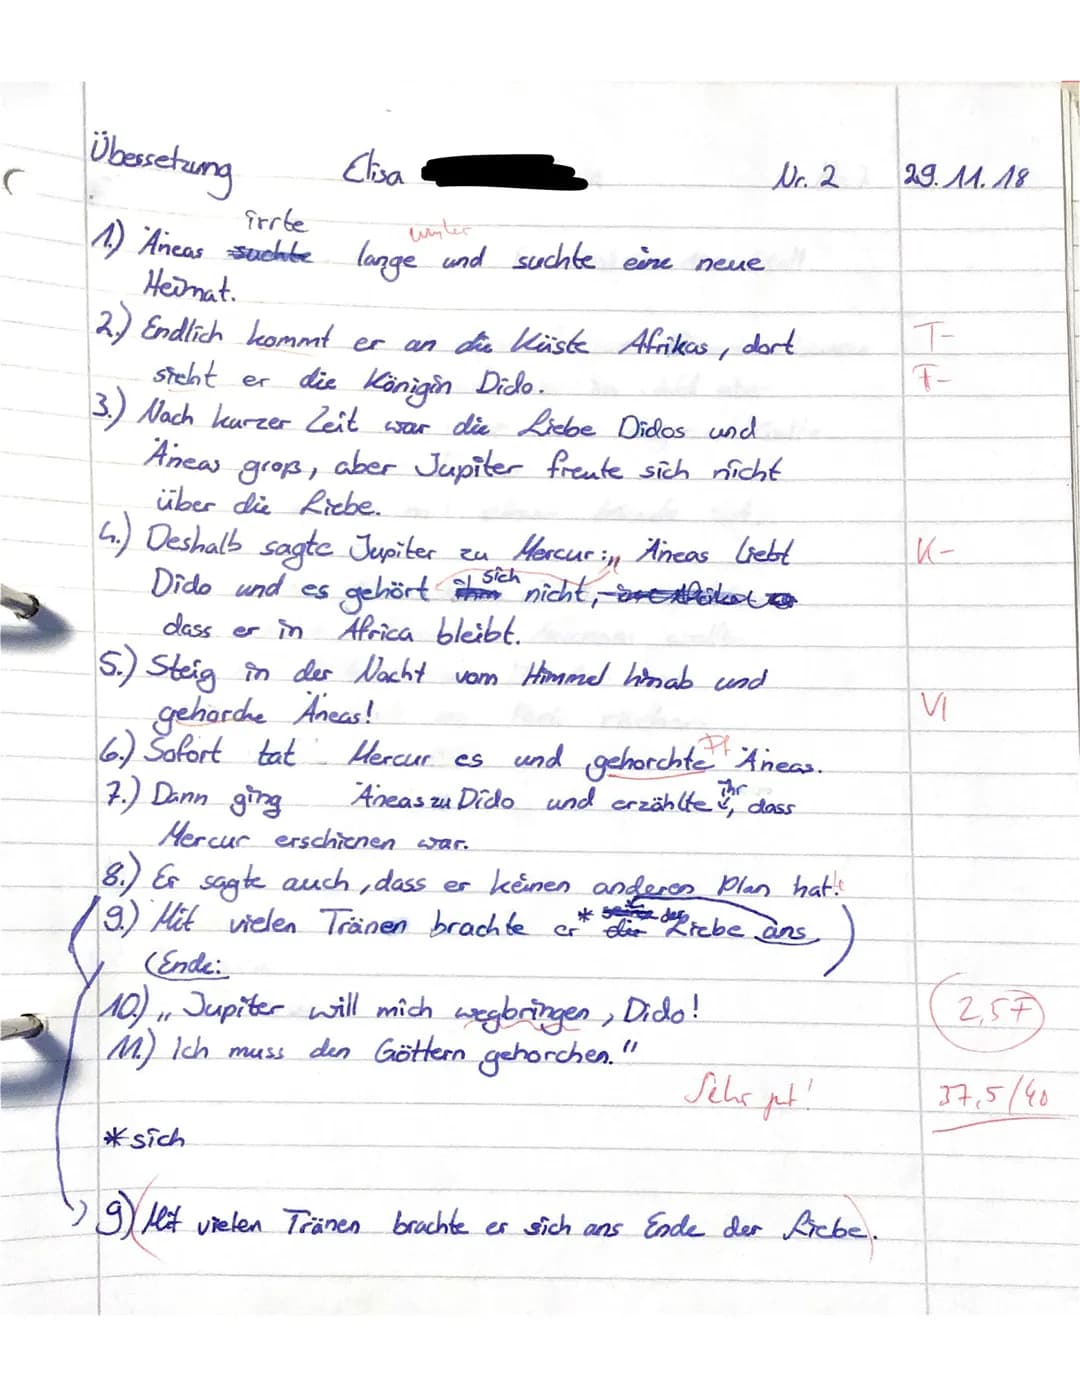 Übersetzung Elisa Nr. 2 29. 11. 18
irrte
1.) Äneas suchte lange und suchte eine neue
Heimat.
2.) Endlich kommt er an die Küste Afrikas, dort T-
sieht er die Königin Dido. T-
3.) Nach kurzer Zeit war die Liebe Didos und
Äneas groß, aber Jupiter freute sich nicht
über die Liebe.
4.) Deshalb sagte Jupiter zu Mercur: „ Äneas liebt K-
Dido und es gehört sich nicht,
dass er in Africa bleibt.
5.) Steig in der Nacht vom Himmel hinab und
gehorche Äneas! VI
6.) Sofort tat Mercur es und gehorchte Äneas.
7.) Dann ging Äneas zu Dido und erzählte ihr, dass
Mercur erschienen war.
8.) Er sagte auch, dass er keinen anderen Plan hat.
9.) Mit vielen Tränen brachte er * die der Liebe ans
(Ende:
10.) „ Jupiter will mich wegbringen, Dido! 2,57
11.) Ich muss den Göttern gehorchen."
Sehr gut! 37,5/40
* sich
9.) Mit vielen Tränen brachte er sich ans Ende der Liebe.